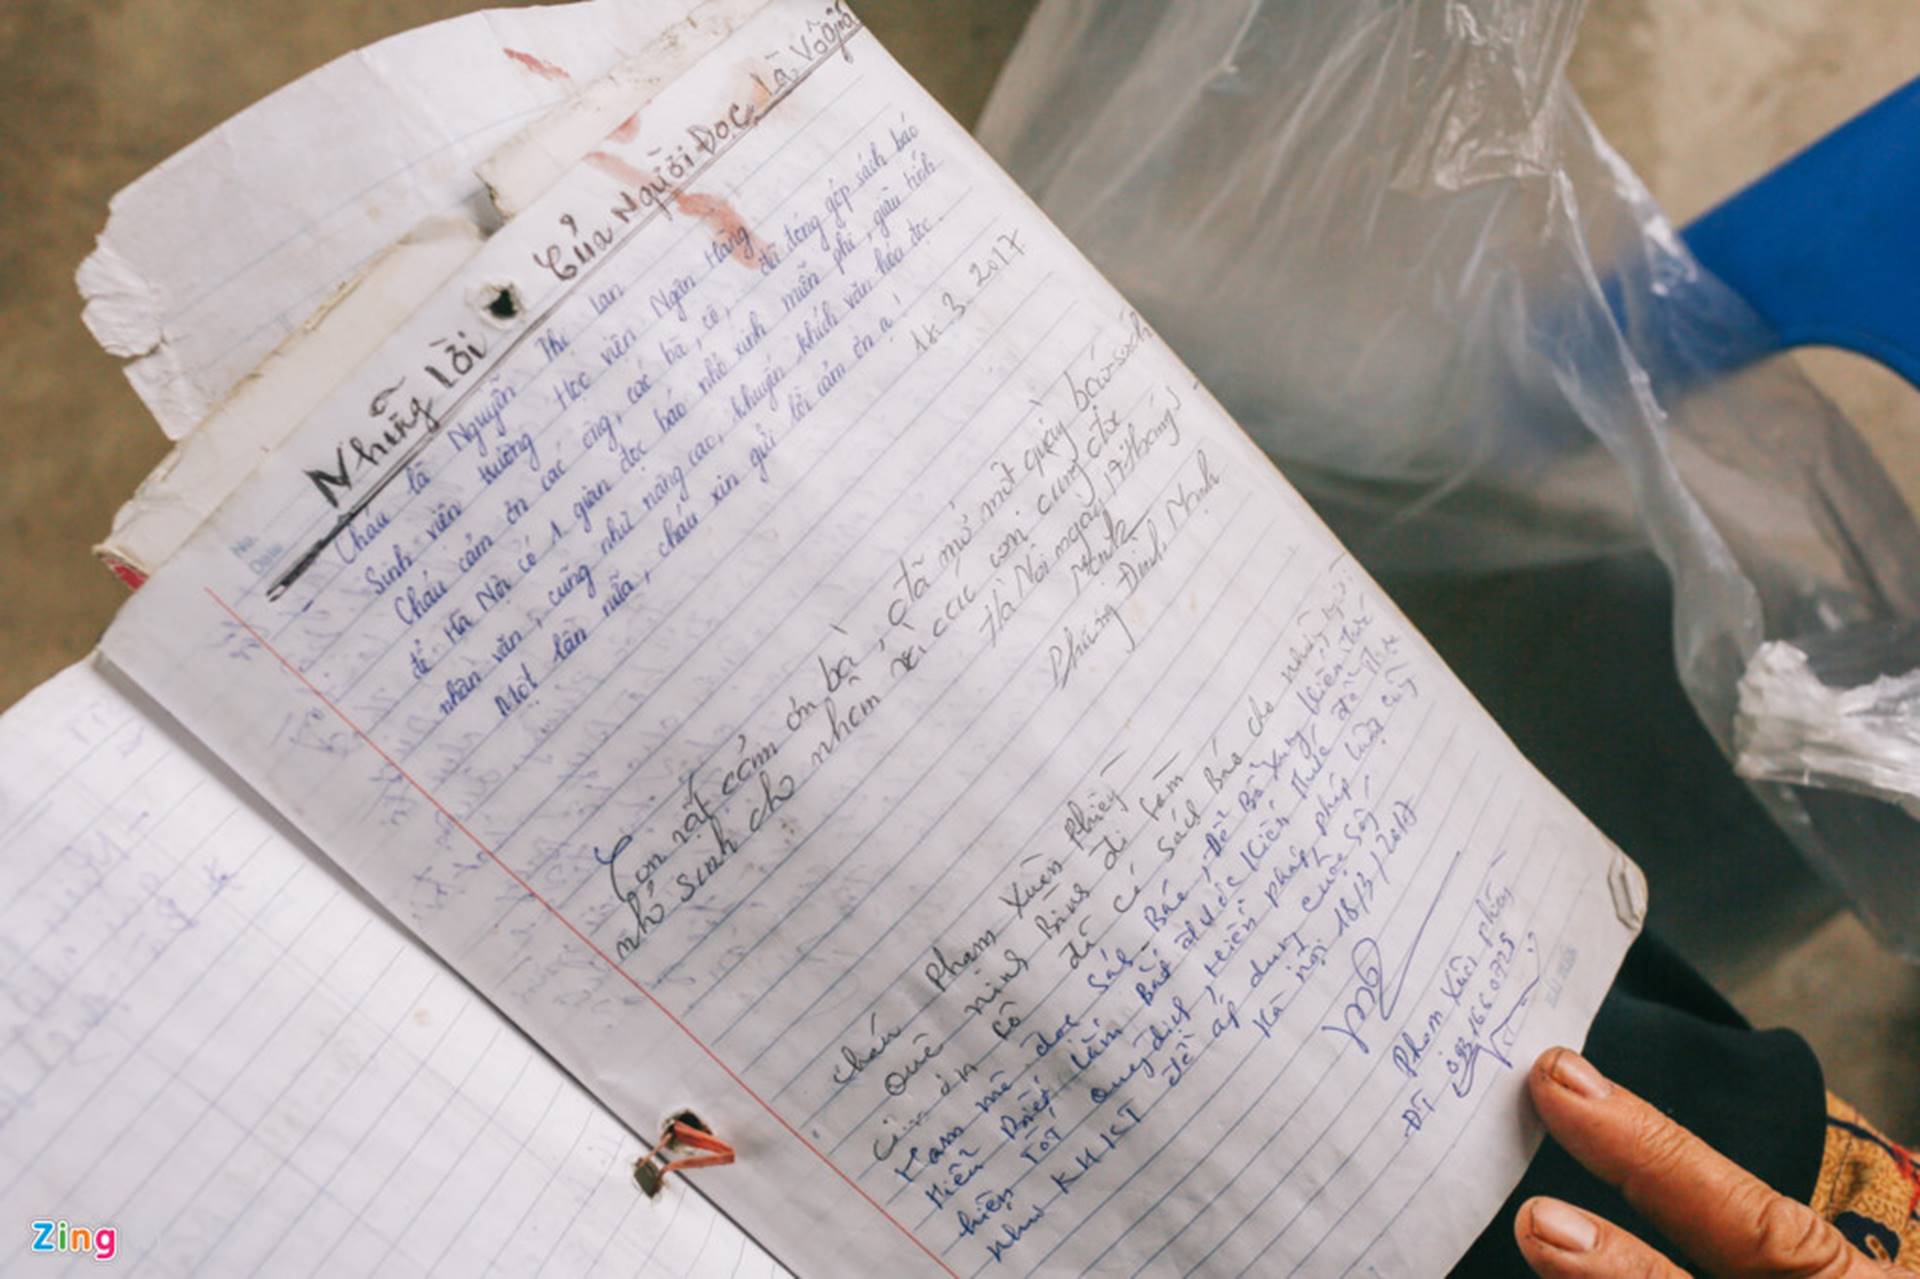 Những Lời Của Người Đọc Là Vô giá
No.
Date
Cháu là Nguyễn Thị Lan
Sinh viên trường Học viện Ngân Hàng
Cháu cảm ơn các ông, các bà, cô, đã đóng góp sách báo
để Hà Nội có 1 gian đọc báo nhỏ xinh miễn phí, giàu tính
nhân văn, cũng như nâng cao, khuyến khích văn hóa đọc.
Một lần nữa, cháu xin gửi lời cảm ơn ạ!
18.3.2017
Con rất cảm ơn bà, đã mở một quầy báo sách
nhỏ sinh cho nhằm với các con cùng đọc
Hà Nội ngày 19 tháng 3
Mạnh
Phùng Đình Mạnh
cháu Phạm Xuân Phiến
Quê ninh Bình đi làm
cảm ơn cô đã có sách Báo cho những người
Ham mê đọc sách Báo, để Bổ xung kiến thức
hiểu Biết làm Bắt được kiến thức để thực
hiện tốt quy định, hiến pháp, pháp luật cũng
như KHKT để áp dụng cuộc sống
Hà nội 18/3/2017
Phạm Xuân phiến
ĐT
Zing